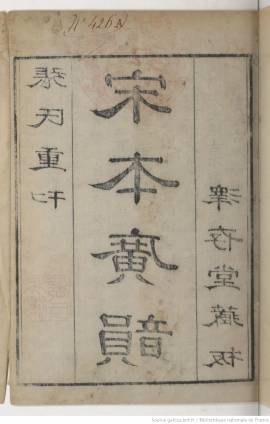 張氏重刊
宋本廣韻
澤存堂藏板
Source gallica.bnf.fr / Bibliothèque nationale de France